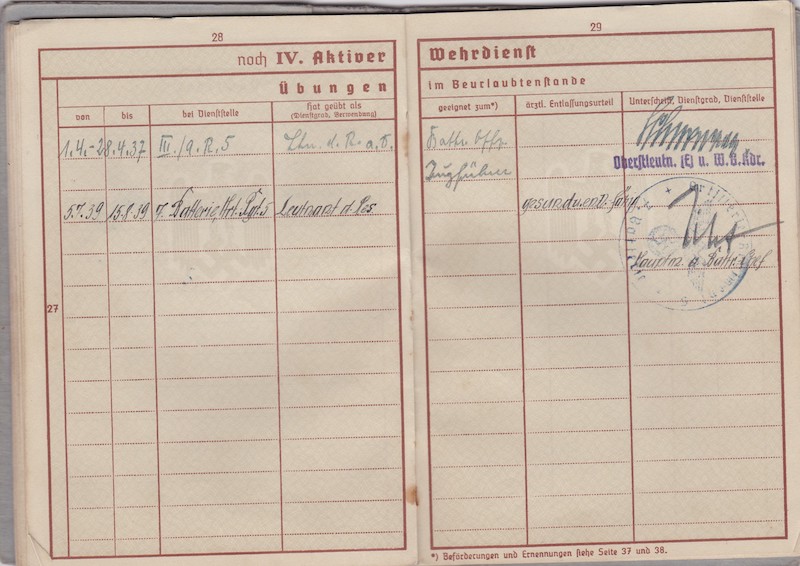 28
noch IV. Aktiver
Übungen
von
bis
bei Dienststelle
Hat geübt als
(Dienstgrad, Verwendung)
1.4.-28.4.37
III./A.R.5
Ltn. d. R. a.D.
5.7.39
15.8.39
7. Batterie, Art. Rgt. 5
Leutnant d. Res
27
29
Wehrdienst
im Beurlaubtenstande
geeignet zum*)
ärztl. Entlassungsurteil
Unterschrift, Dienstgrad, Dienststelle
Battr. Offz.
Zugführer
Oberstleutn. (E) u. W.B.Kdr.
gesund u. entl. fähig
Hauptm. u. Battr. Chef
*) Beförderungen und Ernennungen siehe Seite 37 und 38.